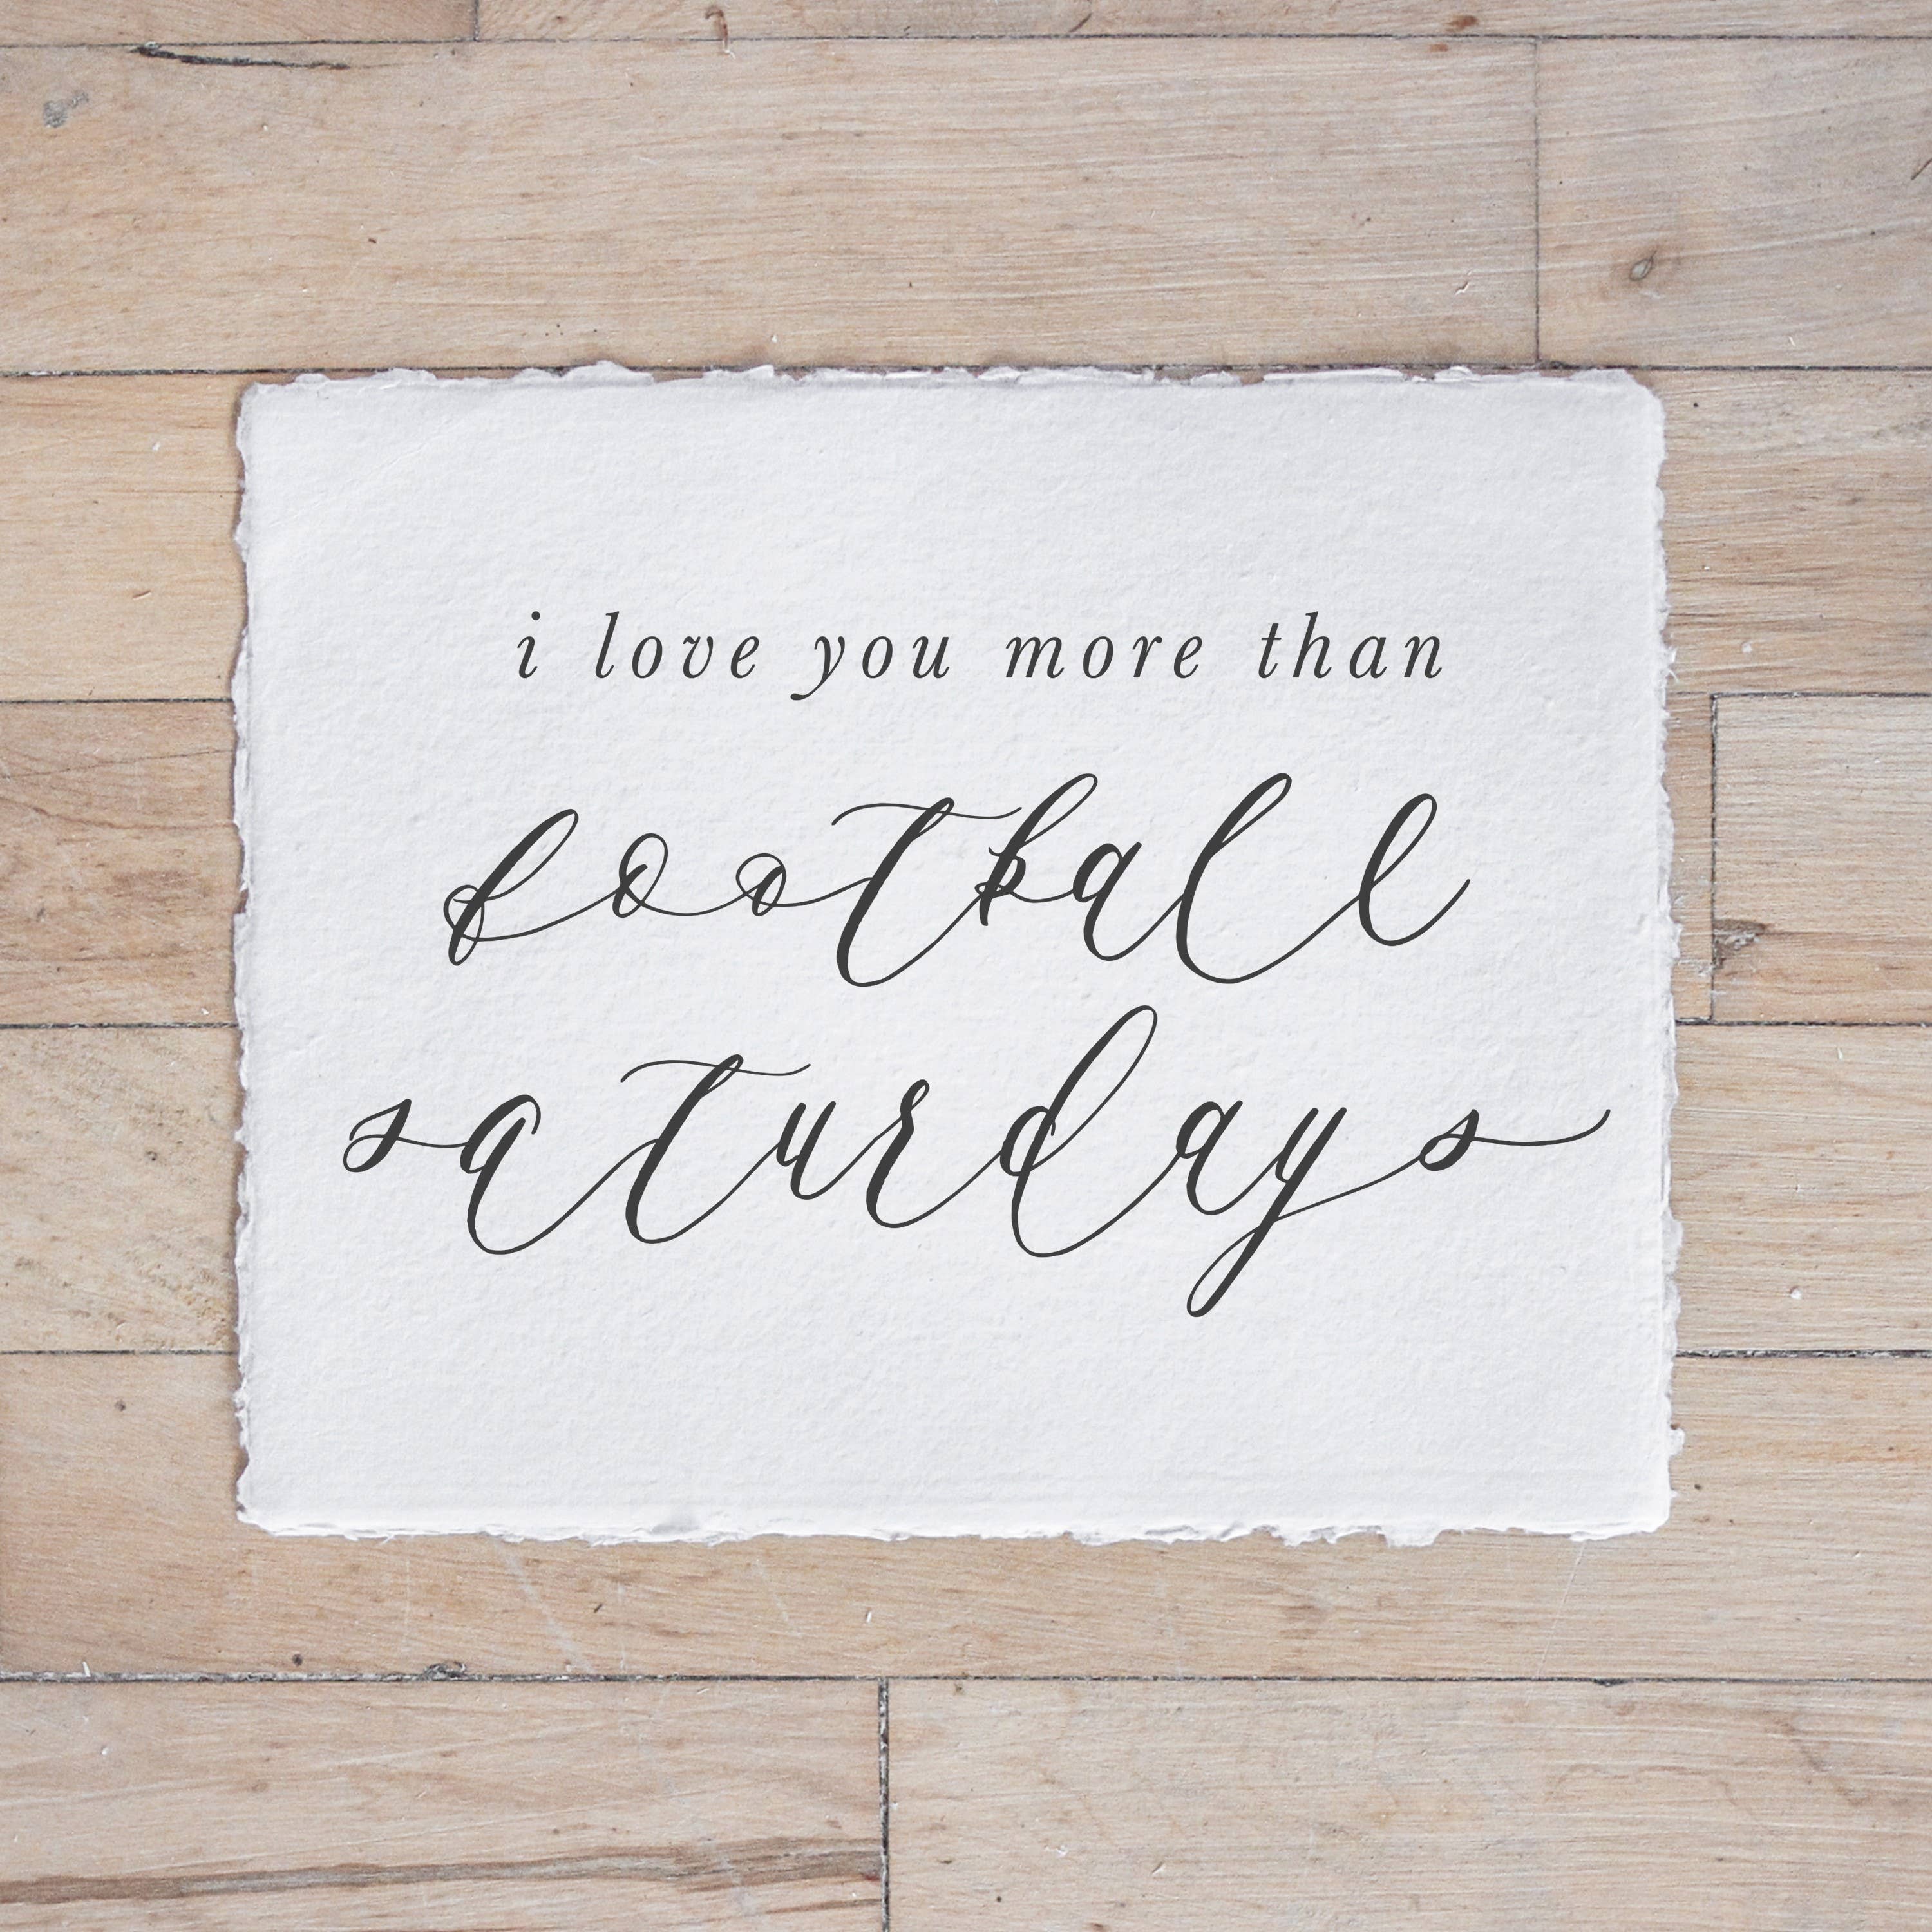 i love you more than
football
saturdays